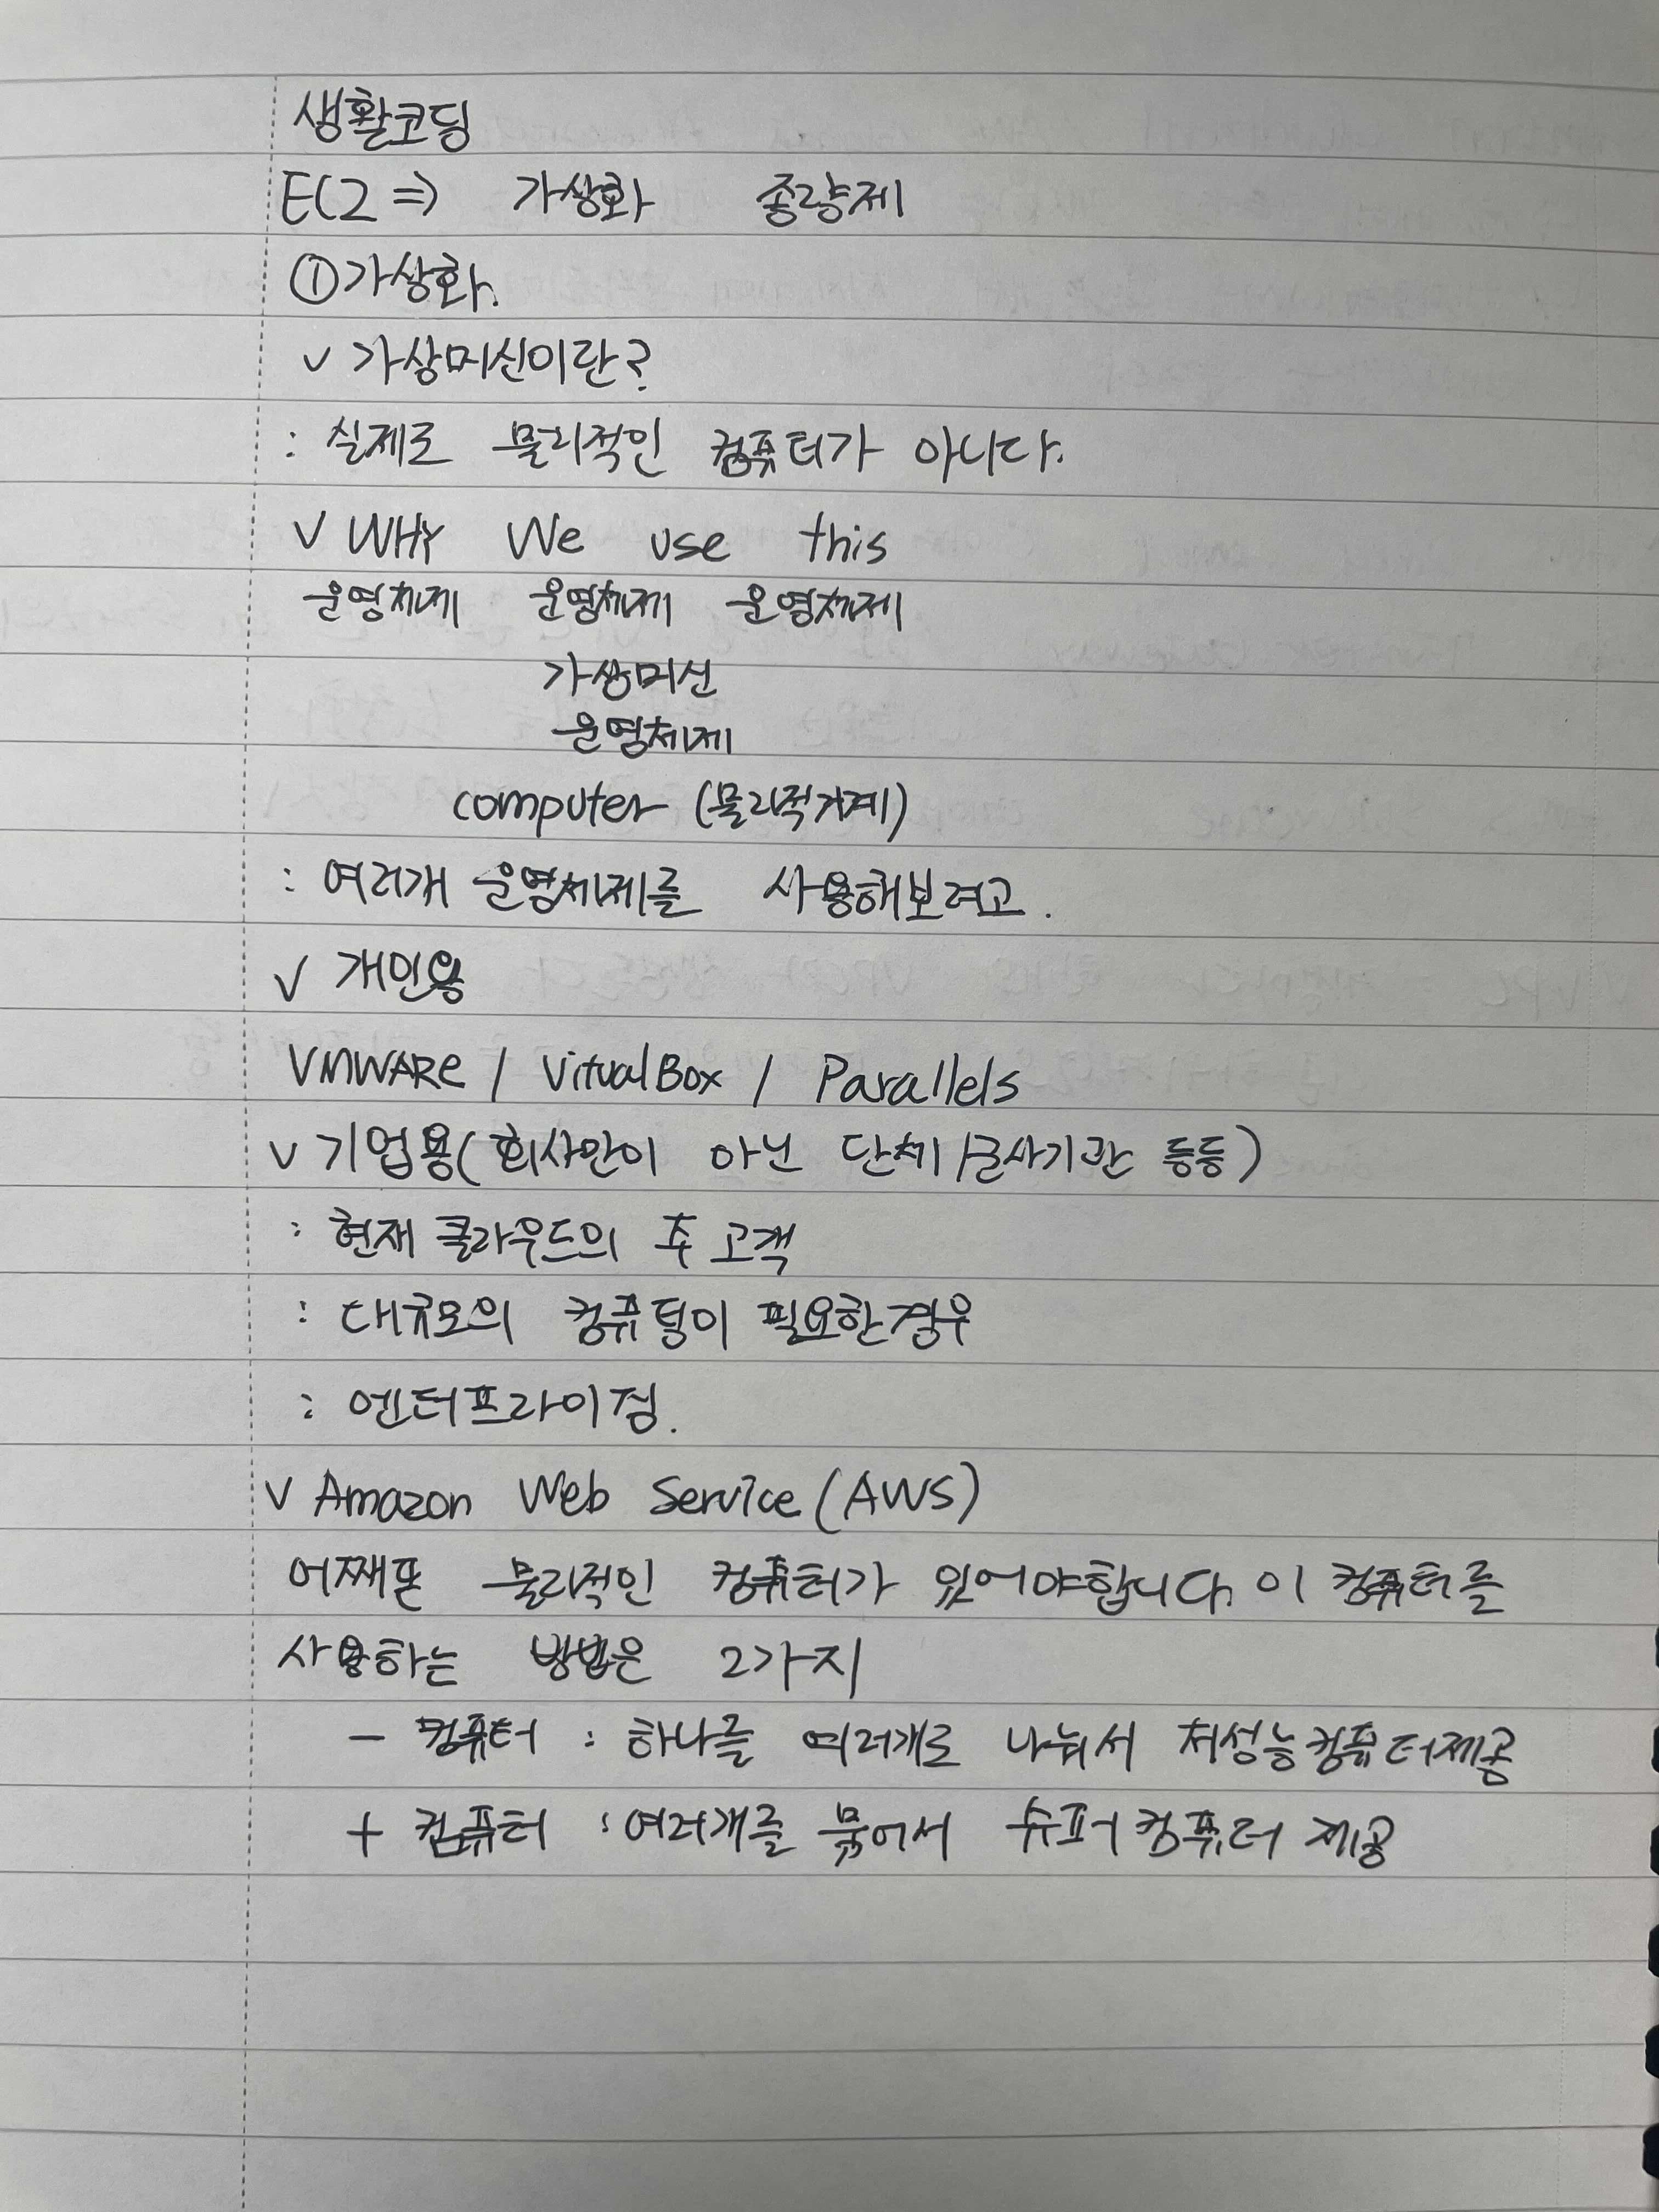 생활코딩
EC2 => 가상화 종량제
①가상화.
✓ 가상머신이란?
: 실제로 물리적인 컴퓨터가 아니다.
✓ WHY We use this
운영체제 운영체제 운영체제
가상머신
운영체제
computer (물리적기계)
: 여러개 운영체제를 사용해보려고.
✓ 개인용
VMWARE / VitualBox / Parallels
✓ 기업용(회사만이 아닌 단체/군사기관 등등)
: 현재 클라우드의 주 고객
: 대규모의 컴퓨팅이 필요한경우
: 엔터프라이징.
✓ Amazon Web Service (AWS)
어쨰뜬 물리적인 컴퓨터가 있어야합니다. 이 컴퓨터를
사용하는 방법은 2가지
- 컴퓨터 : 하나를 여러개로 나눠서 저성능컴퓨터제공
+ 컴퓨터 : 여러개를 묶어서 슈퍼컴퓨터 제공